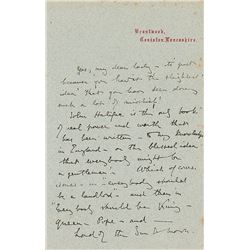 Brantwood,
Coniston, Lancashire.
Yes, my dear lady - to just
because you haven't the slightest
idea that you have been doing
such a lot of mischief
John Halifax is the only book
of real power and worth that
has been written - to my knowledge
in England - on the blessed idea
that everybody might be
a gentleman - Which of course
means - "everybody should
be a landlord - and then in
"Everybody should be King -
Queen - Pope - and
Lord of the Sun & moon.